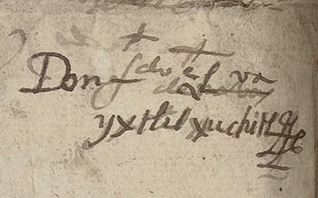 Don fdo de al va
yxtlilxuchitl